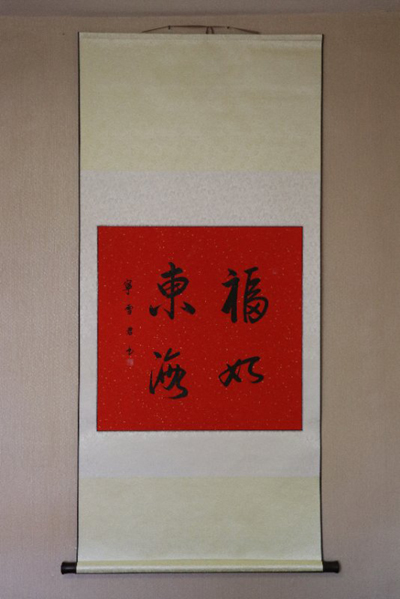 福如
東海